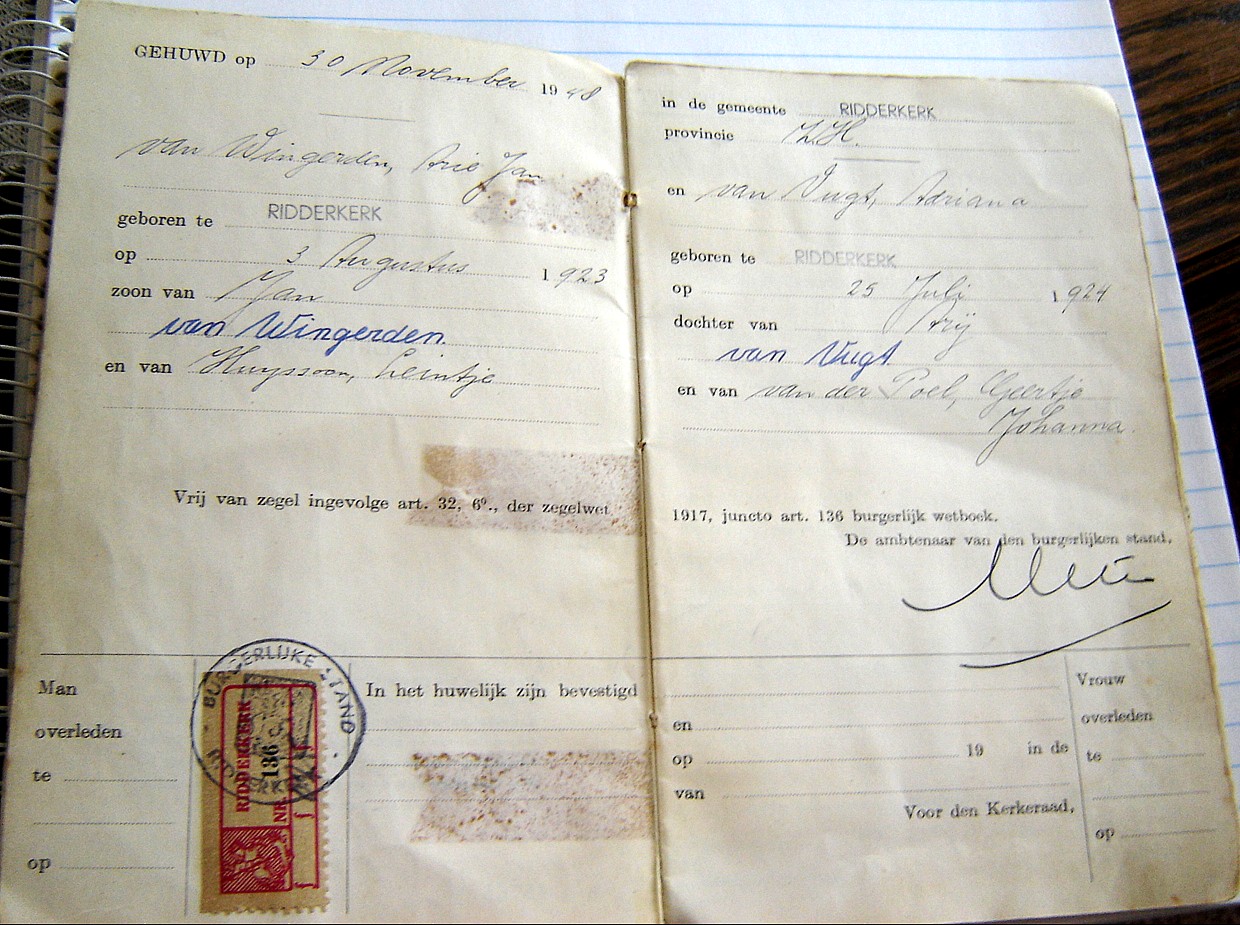 GEHUWD op 30 November 1948
van Wingerden, Arie Jan
geboren te RIDDERKERK
op 3 Augustus 1923
zoon van Jan
van Wingerden
en van Huyssoon, Leintje
Vrij van zegel ingevolge art. 32, 6°., der zegelwet
Man
overleden
te
op
BURGERLIJKE STAND
RIDDERKERK
RIDDERKERK
NR. 136
In het huwelijk zijn bevestigd
in de gemeente RIDDERKERK
provincie Z.H.
en van Vugt, Adriana
geboren te RIDDERKERK
op 25 Juli 1924
dochter van Arij
van Vugt
en van van der Poel, Geertje
Johanna.
1917, juncto art. 136 burgerlijk wetboek.
De ambtenaar van den burgerlijken stand,
en
op 19 in de
van
Voor den Kerkeraad,
Vrouw
overleden
te
op